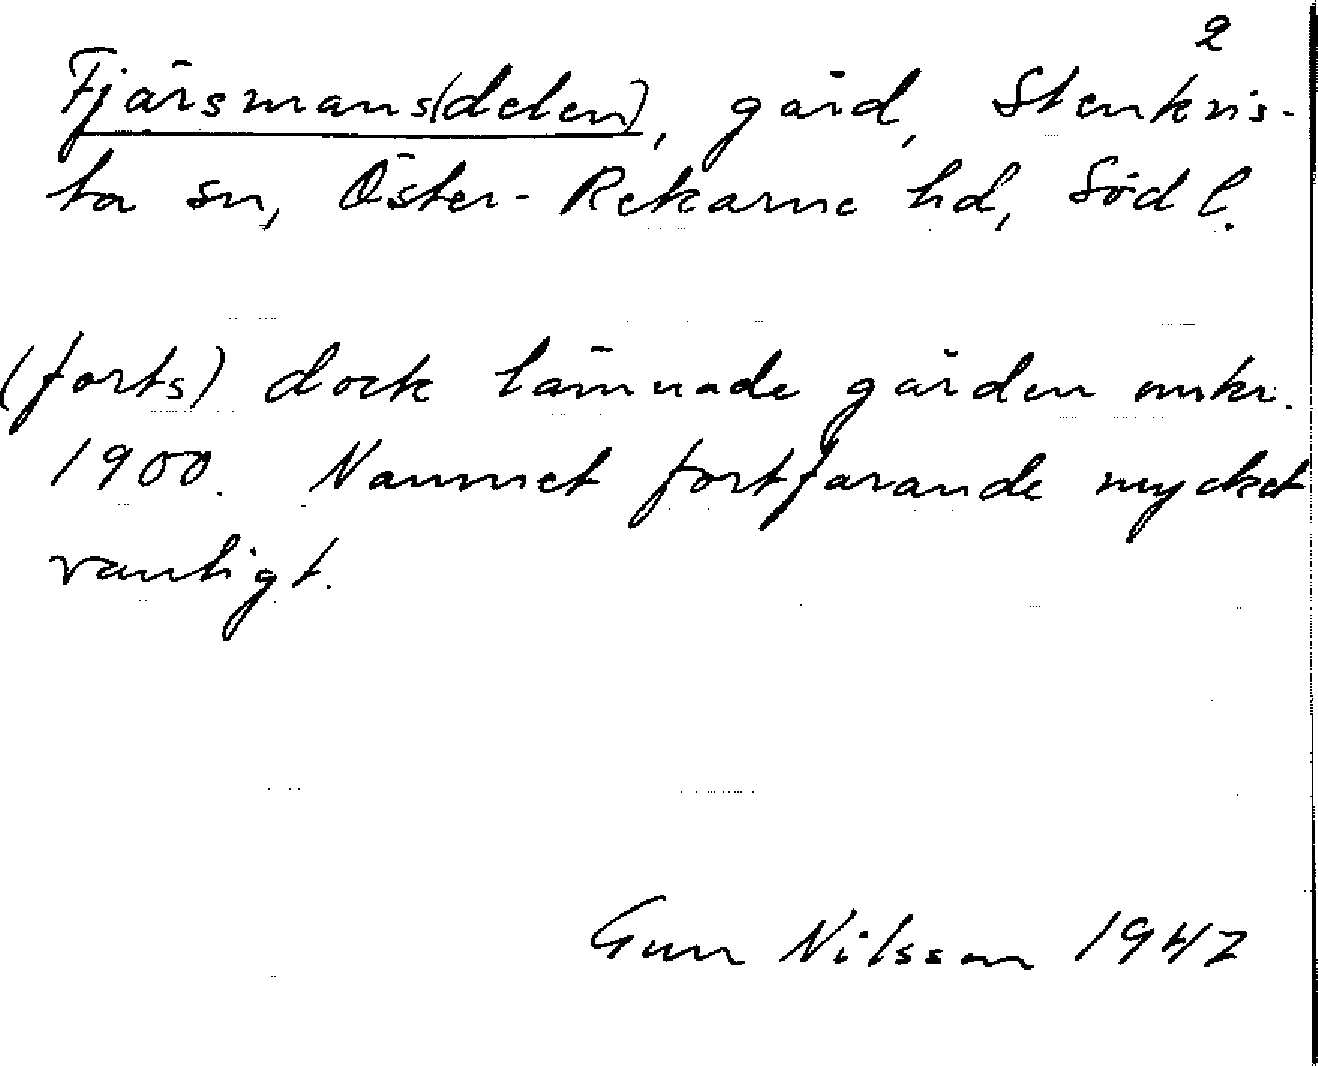 2
Fjärsmans(delen), gård, Stenkvis-
ta sn, Öster-Rekarne hd, Söd l.
(forts) dock lämnade gården omkr.
1900. Namnet fortfarande mycket
vanligt.
Gun Nilsson 1947